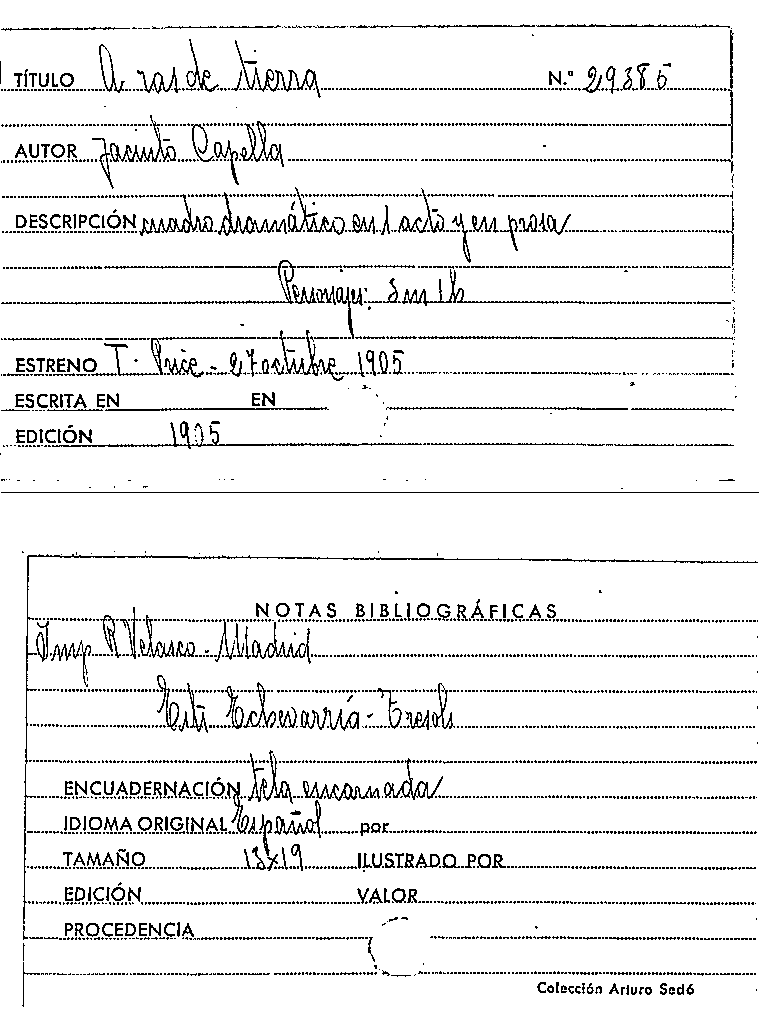 TÍTULO A ras de tierra N.º 29385
AUTOR Jacinto Capella
DESCRIPCIÓN cuadro dramático en 1 acto y en prosa
Personajes: 3 m 1 h
ESTRENO T. Price - 27 octubre 1905
ESCRITA EN EN
EDICIÓN 1905
NOTAS BIBLIOGRÁFICAS
Imp R Velasco - Madrid
Echevarría -
ENCUADERNACIÓN tela encarnada
IDIOMA ORIGINAL Español por
TAMAÑO 13x19 ILUSTRADO POR
EDICIÓN VALOR
PROCEDENCIA
Colección Arturo Sedó